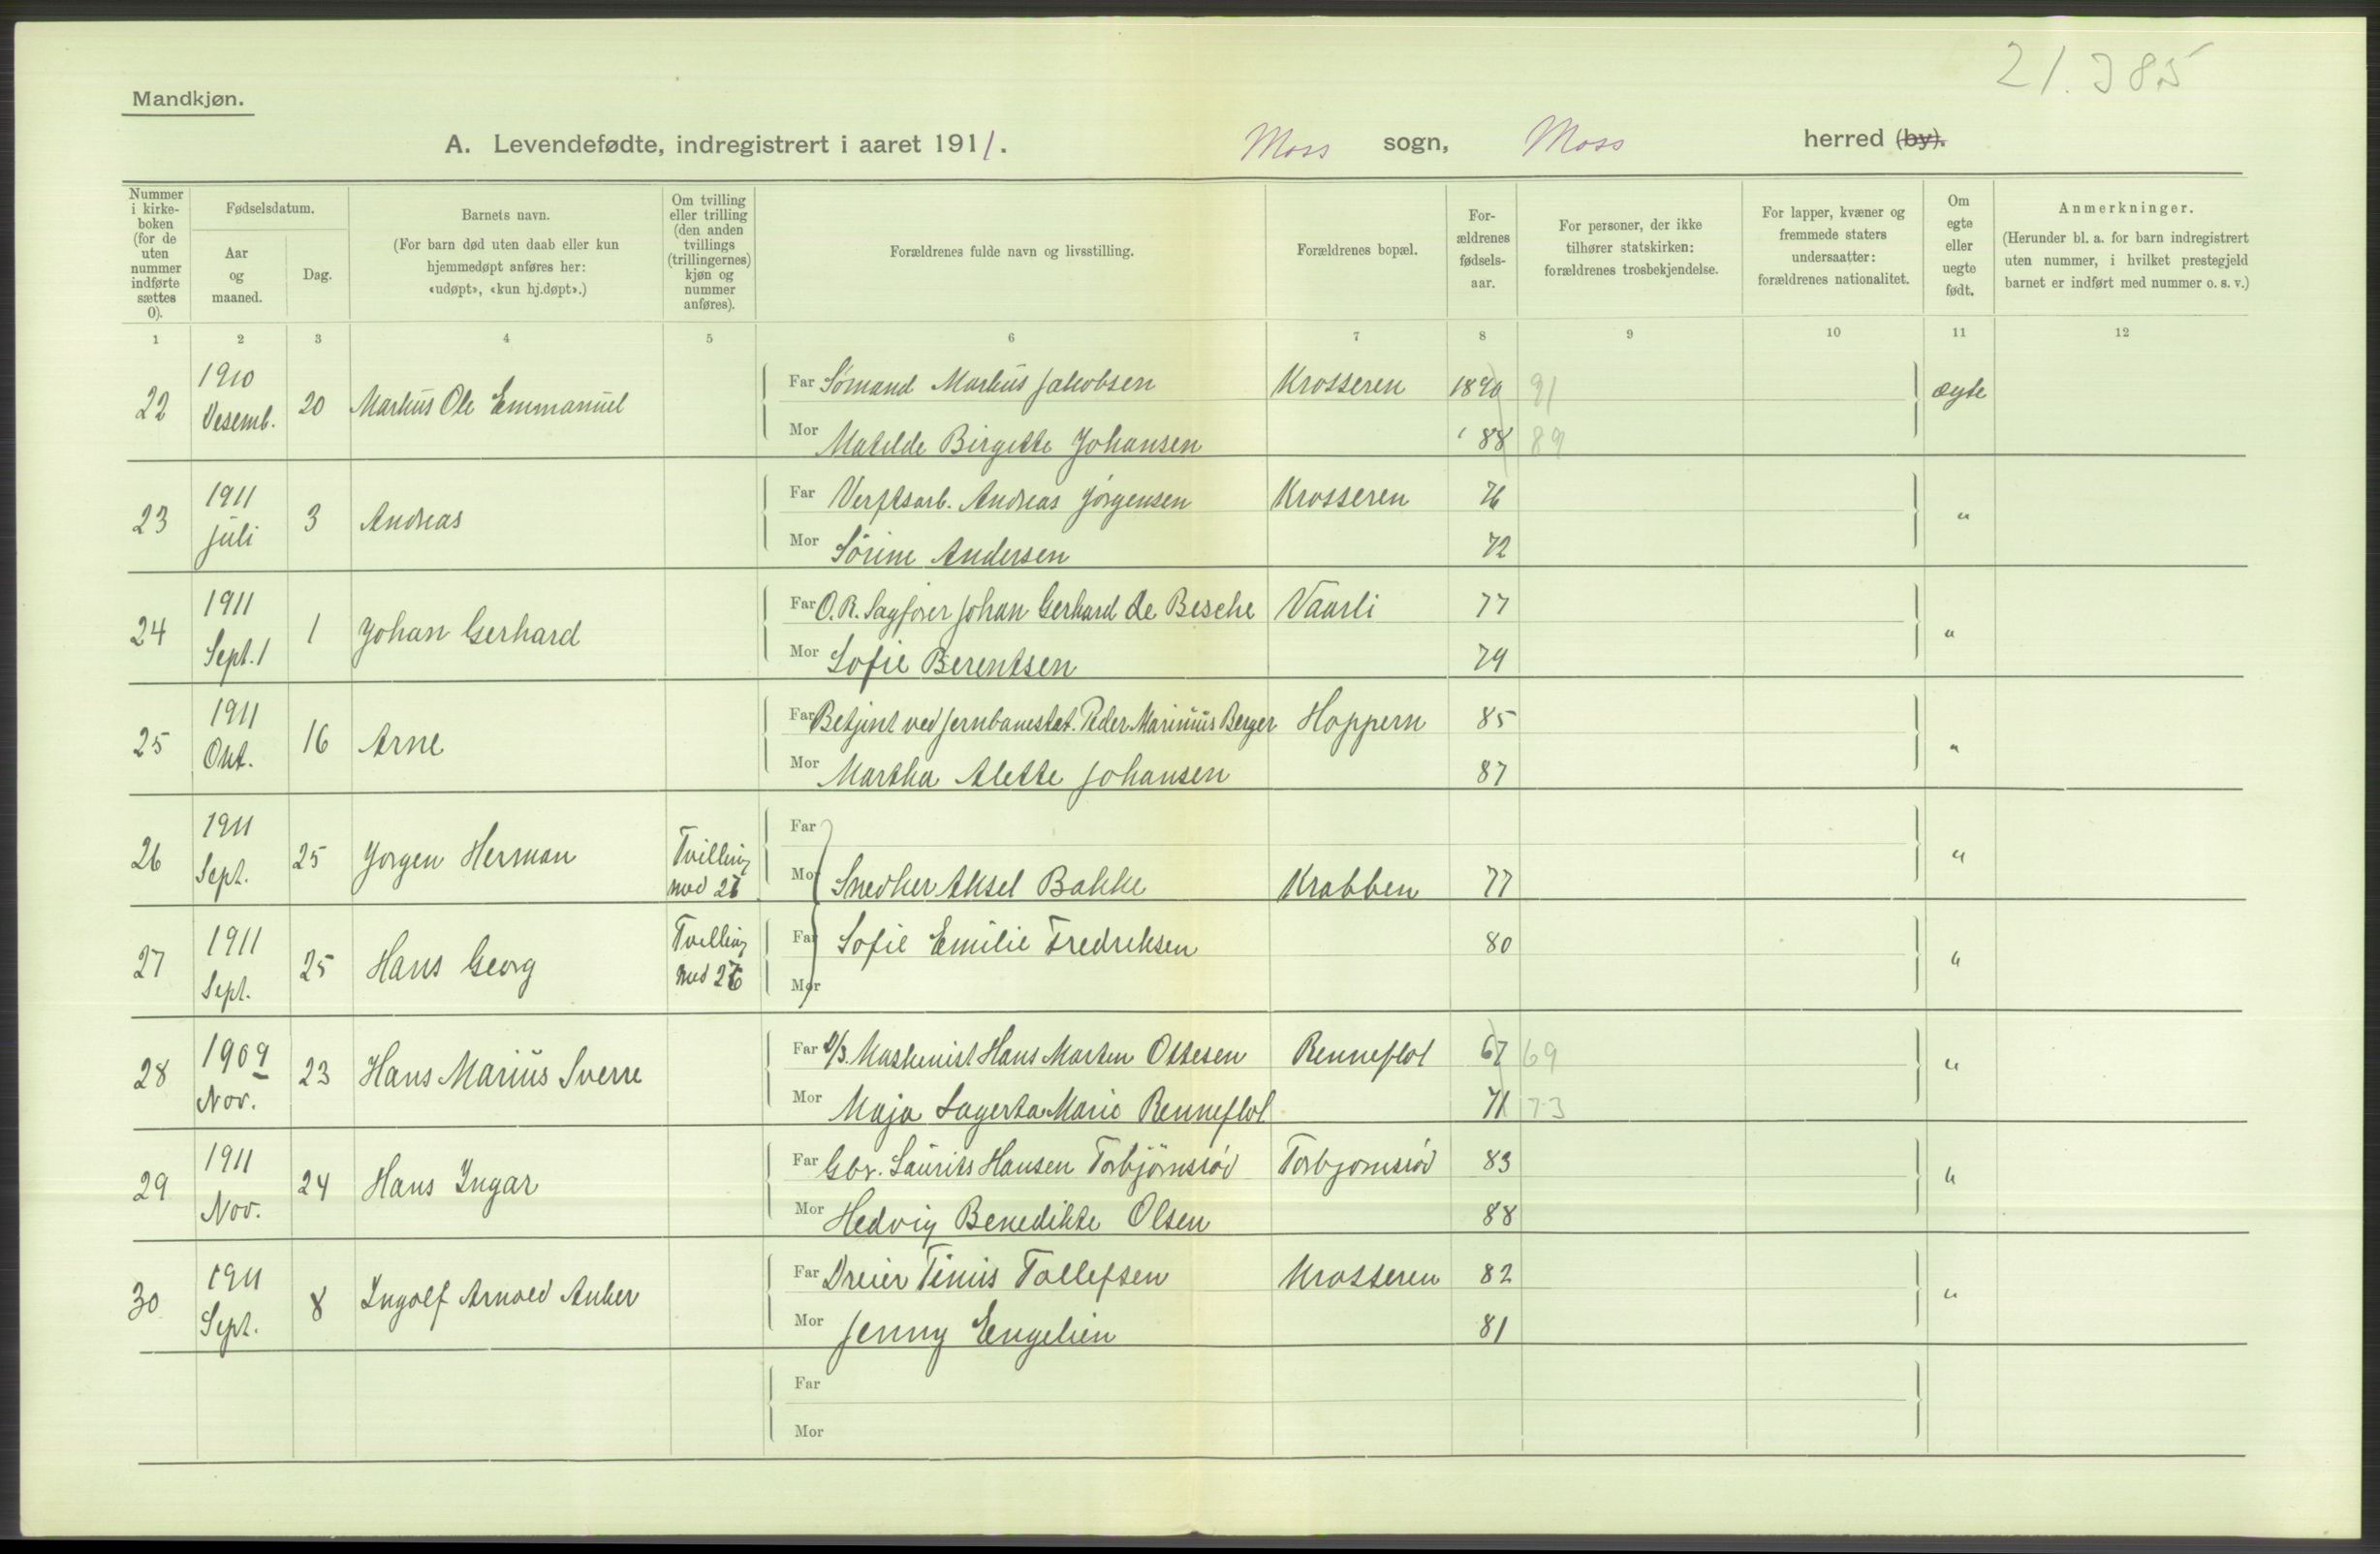 21.385
Mandkjøn.
A. Levendefødte, indregistrert i aaret 1911. Moss sogn, Moss herred (by).
Nummer i kirke-boken (for de uten nummer indførte sættes 0).
Fødselsdatum.
Aar og maaned.
Dag.
Barnets navn.
(For barn død uten daab eller kun hjemmedøpt anføres her: «udøpt», «kun hj.døpt».)
Om tvilling eller trilling (den anden tvillings (trillingernes) kjøn og nummer anføres).
Forældrenes fulde navn og livsstilling.
Forældrenes bopæl.
For-ældrenes fødsels-aar.
For personer, der ikke tilhører statskirken: forældrenes trosbekjendelse.
For lapper, kvæner og fremmede staters undersaatter: forældrenes nationalitet.
Om egte eller uegte født.
Anmerkninger.
(Herunder bl. a. for barn indregistrert uten nummer, i hvilket prestegjeld barnet er indført med nummer o. s. v.)
1 2 3 4 5 6 7 8 9 10 11 12
22 1910 Desemb. 20 Markus Ole Emmanuel Far Sømand Markus Jakobsen Krosseren 1890 91 ægte
Mor Matilde Birgitte Johansen ' 88 89
23 1911 Juli 3 Andreas Far Verftsarb. Andreas Jørgensen Krosseren 76 "
Mor Sørine Andersen 72
24 1911 Sept. 1 1 Johan Gerhard Far O.R. Sagfører Johan Gerhard de Besche Vaarli 77 "
Mor Sofie Berentsen 79
25 1911 Okt. 16 Arne Far Betjent ved Jernbanestat. Peder Marinius Berger Hoppern 85 "
Mor Martha Alette Johansen 87
26 1911 Sept. 25 Jørgen Herman Tvilling med 27 Far
Mor Snedker Aksel Bakke Krabben 77 "
27 1911 Sept. 25 Hans Georg Tvilling med 26 Far Sofie Emilie Fredriksen 80 "
Mor
28 1909 Nov. 23 Hans Marius Sverre Far D/S. Maskinist Hans Morten Ottesen Renneflot 67 69 "
Mor Maja Lagerta Marie Renneflot 71 73
29 1911 Nov. 24 Hans Ingar Far Gbr. Laurits Hansen Torbjørnsrød Torbjørnsrød 83 "
Mor Hedvig Benedikte Olsen 88
30 1911 Sept. 8 Ingolf Arnold Anker Far Dreier Tinius Tollefsen Krosseren 82 "
Mor Jenny Engelien 81
Far
Mor